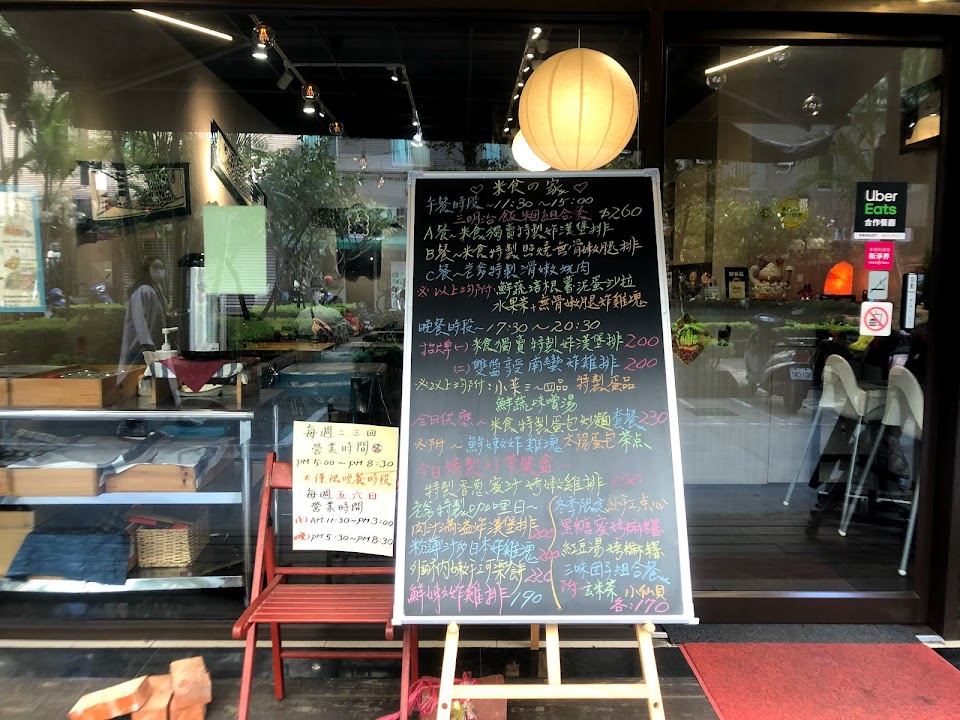 ♡ 米食の家 ♡
午餐時段~11:30~15:00
三明治飯糰組合套 $260
A餐~米食獨賣特製炸漢堡排
B餐~米食特製照燒無骨嫩腿排
C餐~老爹特製滑嫩燒肉
※以上均附:鮮蔬培根薯泥蛋沙拉
水果茶+無骨嫩腿炸雞塊
晚餐時段~17:30~20:30
招牌(一)米食獨賣特製炸漢堡排 200
(二)雙醬享受南蠻炸雞排 200
※以上均附:小菜三~四品 特製蛋品
鮮蔬味噌湯
全日供應~米食特製蛋包炒麵套餐230
※附~鮮嫩炸雞塊 太陽蛋包 茶点
今日特製
特製香蔥蜜汁烤嫩雞排
老爹特製
肉汁滿溢炸漢堡排 200
日本炸雞塊 200
外酥內嫩炸可樂餅 220
鮮嫩炸雞排 190
冬季限定
点心
黑糖蜜烤麻糬
紅豆湯烤麻糬
三味団子組合餐
附:玄米茶 小仙貝
各:170
每週二三四
營業時間
PM 5:00~PM 8:30
*僅限晚餐時段
每週五六日
營業時間
(午)AM 11:30~PM 3:00
(晚)PM 5:30~PM 8:30
Uber
Eats
合作餐廳
振淨券